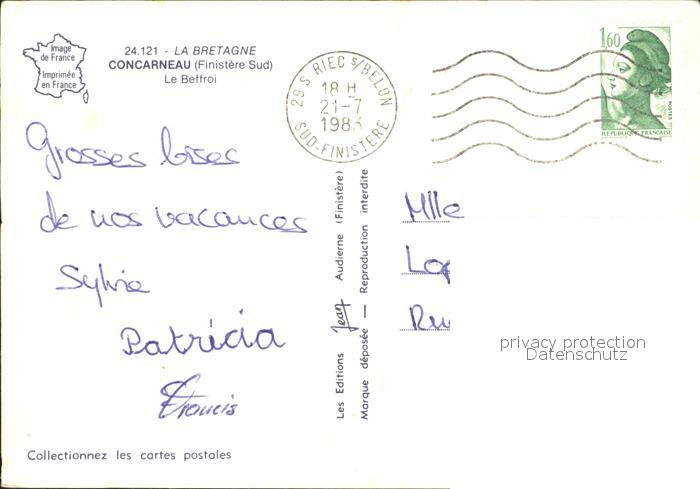 Image
de France
Imprimée
en France
24.121 - LA BRETAGNE
CONCARNEAU (Finistère Sud)
Le Beffroi
29 S RIEC S/BELON
18 H
21-7
SUD-FINISTERE
1,60
POSTES
REPUBLIQUE FRANCAISE
Grosses bises
de nos vacances
Sylvie
Patricia
Francis
Les Editions Jean Audierne (Finistère)
Marque déposée — Reproduction interdite
Mlle
privacy protection
Datenschutz
Collectionnez les cartes postales